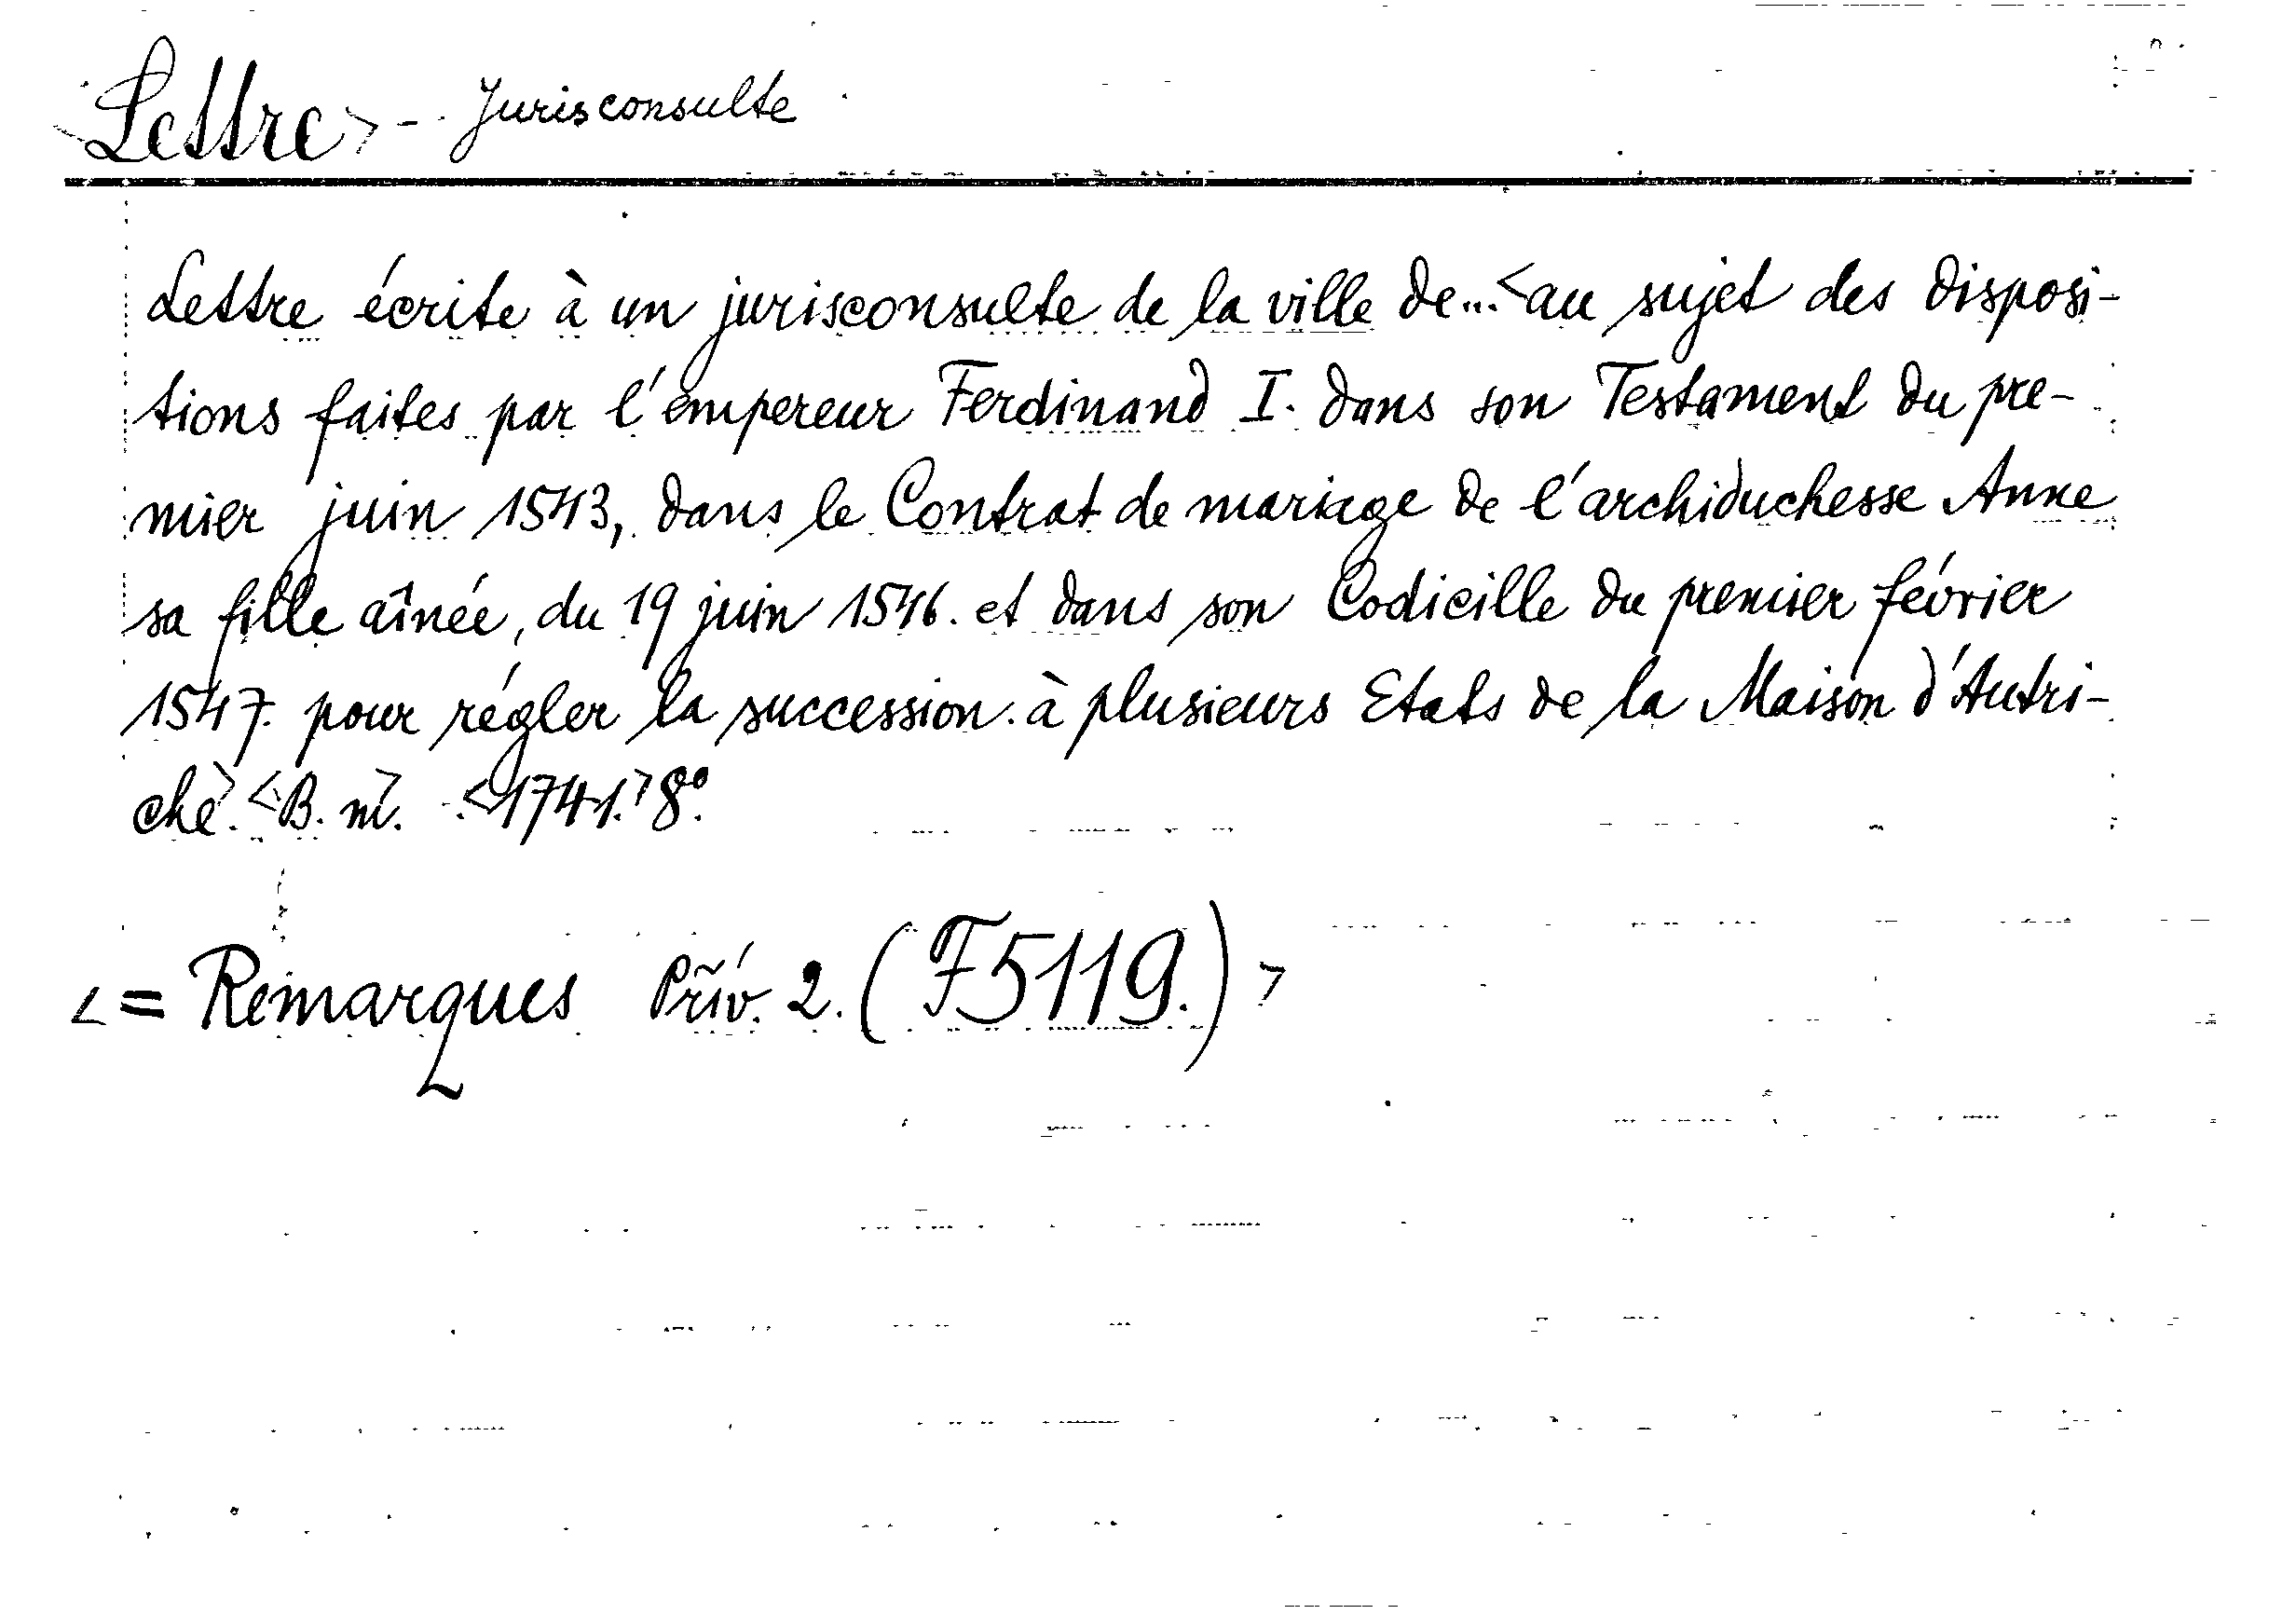 <Lettre> - Jurisconsulte
Lettre écrite à un jurisconsulte de la ville de... <au sujet des disposi-
tions faites par l'empereur Ferdinand I. dans son Testament du pre-
mier juin 1543, dans le Contrat de mariage de l'archiduchesse Anne
sa fille aînée, du 19 juin 1546. et dans son Codicille du premier février
1547. pour régler la succession à plusieurs Etats de la Maison d'Autri-
che>. <B. m>. <1741.> 8º.
<= Remarques Priv. 2. (F5119.)>